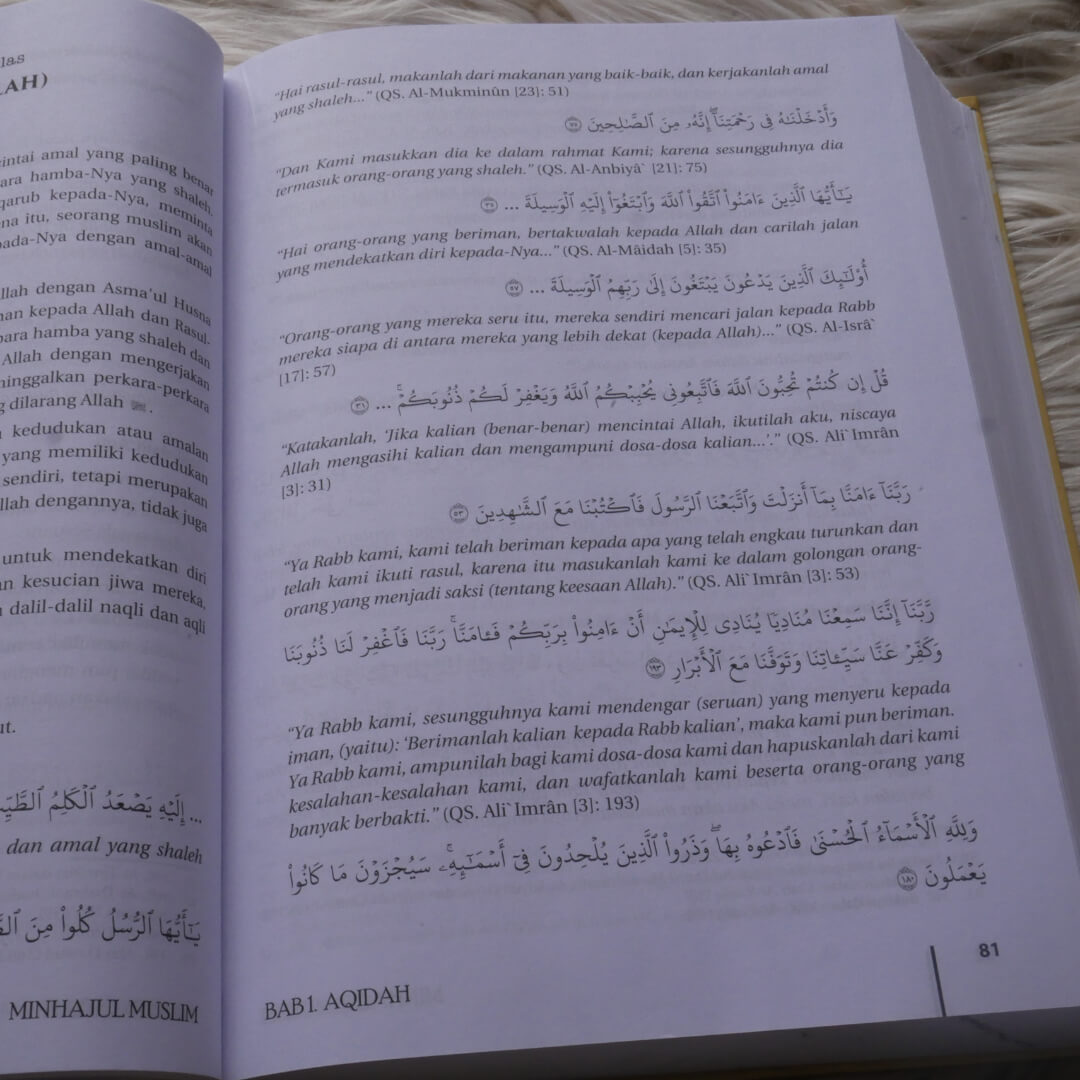 las
LAH)
intai amal yang paling benar
ara hamba-Nya yang shaleh.
qarub kepada-Nya, meminta
na itu, seorang muslim akan
pada-Nya dengan amal-amal
llah dengan Asma'ul Husna
nan kepada Allah dan Rasul.
para hamba yang shaleh dan
Allah dengan mengerjakan
ninggalkan perkara-perkara
g dilarang Allah ﷻ.
kedudukan atau amalan
yang memiliki kedudukan
sendiri, tetapi merupakan
llah dengannya, tidak juga
untuk mendekatkan diri
an kesucian jiwa mereka,
dalil-dalil naqli dan aqli
ut.
... إِلَيْهِ يَصْعَدُ ٱلْكَلِمُ ٱلطَّيِّ
dan amal yang shaleh
يَـٰٓأَيُّهَا ٱلرُّسُلُ كُلُوا۟ مِنَ ٱلطَّ
MINHAJUL MUSLIM
"Hai rasul-rasul, makanlah dari makanan yang baik-baik, dan kerjakanlah amal
yang shaleh..." (QS. Al-Mukminûn [23]: 51)
وَأَدْخَلْنَـٰهُ فِى رَحْمَتِنَآ ۖ إِنَّهُۥ مِنَ ٱلصَّـٰلِحِينَ ٧٥
"Dan Kami masukkan dia ke dalam rahmat Kami; karena sesungguhnya dia
termasuk orang-orang yang shaleh." (QS. Al-Anbiyâ` [21]: 75)
يَـٰٓأَيُّهَا ٱلَّذِينَ ءَامَنُوا۟ ٱتَّقُوا۟ ٱللَّهَ وَٱبْتَغُوٓا۟ إِلَيْهِ ٱلْوَسِيلَةَ ... ٣٥
"Hai orang-orang yang beriman, bertakwalah kepada Allah dan carilah jalan
yang mendekatkan diri kepada-Nya..." (QS. Al-Mâidah [5]: 35)
أُو۟لَـٰٓئِكَ ٱلَّذِينَ يَدْعُونَ يَبْتَغُونَ إِلَىٰ رَبِّهِمُ ٱلْوَسِيلَةَ ... ٥٧
"Orang-orang yang mereka seru itu, mereka sendiri mencari jalan kepada Rabb
mereka siapa di antara mereka yang lebih dekat (kepada Allah)..." (QS. Al-Isrâ`
[17]: 57)
قُلْ إِن كُنتُمْ تُحِبُّونَ ٱللَّهَ فَٱتَّبِعُونِى يُحْبِبْكُمُ ٱللَّهُ وَيَغْفِرْ لَكُمْ ذُنُوبَكُمْ ۗ ... ٣١
"Katakanlah, 'Jika kalian (benar-benar) mencintai Allah, ikutilah aku, niscaya
Allah mengasihi kalian dan mengampuni dosa-dosa kalian...'." (QS. Ali`Imrân
[3]: 31)
رَبَّنَآ ءَامَنَّا بِمَآ أَنزَلْتَ وَٱتَّبَعْنَا ٱلرَّسُولَ فَٱكْتُبْنَا مَعَ ٱلشَّـٰهِدِينَ ٥٣
"Ya Rabb kami, kami telah beriman kepada apa yang telah engkau turunkan dan
telah kami ikuti rasul, karena itu masukanlah kami ke dalam golongan orang-
orang yang menjadi saksi (tentang keesaan Allah)." (QS. Ali`Imrân [3]: 53)
رَّبَّنَآ إِنَّنَا سَمِعْنَا مُنَادِيًا يُنَادِى لِلْإِيمَـٰنِ أَنْ ءَامِنُوا۟ بِرَبِّكُمْ فَـَٔامَنَّا ۚ رَبَّنَا فَٱغْفِرْ لَنَا ذُنُوبَنَا
وَكَفِّرْ عَنَّا سَيِّـَٔاتِنَا وَتَوَفَّنَا مَعَ ٱلْأَبْرَارِ ١٩٣
"Ya Rabb kami, sesungguhnya kami mendengar (seruan) yang menyeru kepada
iman, (yaitu): 'Berimanlah kalian kepada Rabb kalian', maka kami pun beriman.
Ya Rabb kami, ampunilah bagi kami dosa-dosa kami dan hapuskanlah dari kami
kesalahan-kesalahan kami, dan wafatkanlah kami beserta orang-orang yang
banyak berbakti." (QS. Ali`Imrân [3]: 193)
وَلِلَّهِ ٱلْأَسْمَآءُ ٱلْحُسْنَىٰ فَٱدْعُوهُ بِهَا ۖ وَذَرُوا۟ ٱلَّذِينَ يُلْحِدُونَ فِىٓ أَسْمَـٰٓئِهِۦ ۚ سَيُجْزَوْنَ مَا كَانُوا۟
يَعْمَلُونَ ١٨٠
BAB 1. AQIDAH
81